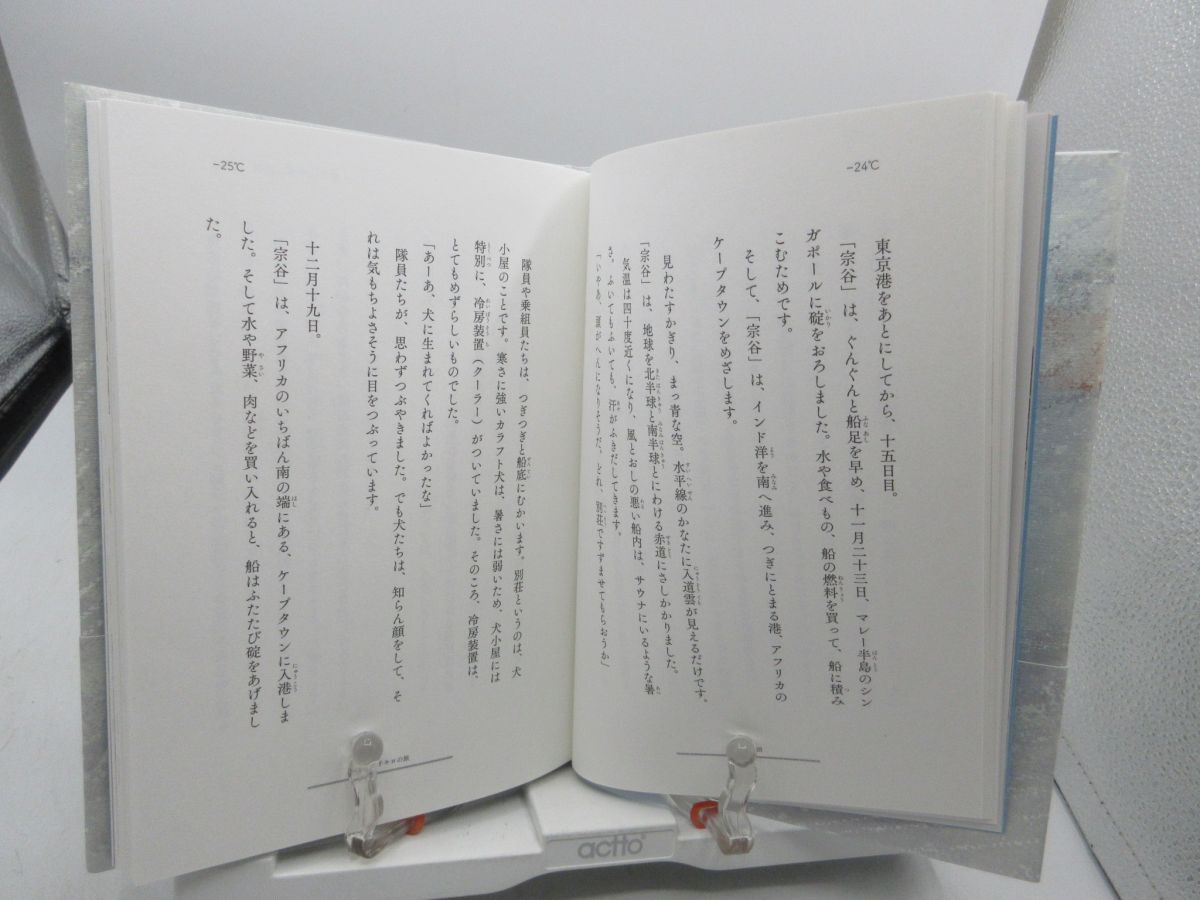 −24℃
東京港をあとにしてから、十五日目。
「宗谷」は、ぐんぐんと船足を早め、十一月二十三日、マレー半島のシン
ガポールに碇をおろしました。水や食べもの、船の燃料を買って、船に積み
こむためです。
そして、「宗谷」は、インド洋を南へ進み、つぎにとまる港、アフリカの
ケープタウンをめざします。
見わたすかぎり、まっ青な空。水平線のかなたに入道雲が見えるだけです。
「宗谷」は、地球を北半球と南半球とにわける赤道にさしかかりました。
気温は四十度近くになり、風とおしの悪い船内は、サウナにいるような暑
さ。ふいてもふいても、汗がふきだしてきます。
「いやあ、頭がへんになりそうだ。どれ、別荘ですずませてもらおうか」
−25℃
隊員や乗組員たちは、つぎつぎと船底にむかいます。別荘というのは、犬
小屋のことです。寒さに強いカラフト犬は、暑さには弱いため、犬小屋には
特別に、冷房装置（クーラー）がついていました。そのころ、冷房装置は、
とてもめずらしいものでした。
「あーあ、犬に生まれてくればよかったな」
隊員たちが、思わずつぶやきました。でも犬たちは、知らん顔をして、そ
れは気もちよさそうに目をつぶっています。
十二月十九日。
「宗谷」は、アフリカのいちばん南の端にある、ケープタウンに入港しま
した。そして水や野菜、肉などを買い入れると、船はふたたび碇をあげまし
た。
キロの旅
actto